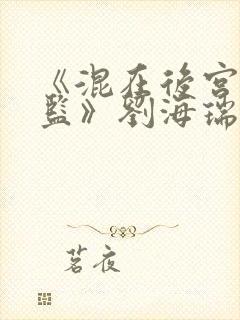 《混在後宮
監》劉海瑞
茗夜